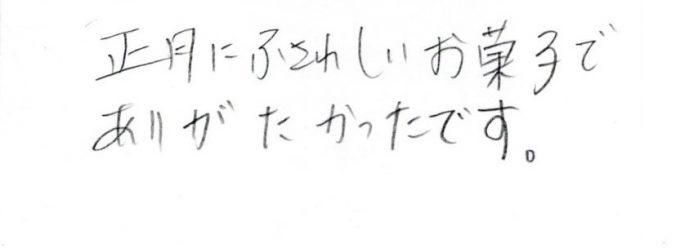 正月にふさわしいお菓子で
ありがたかったです。